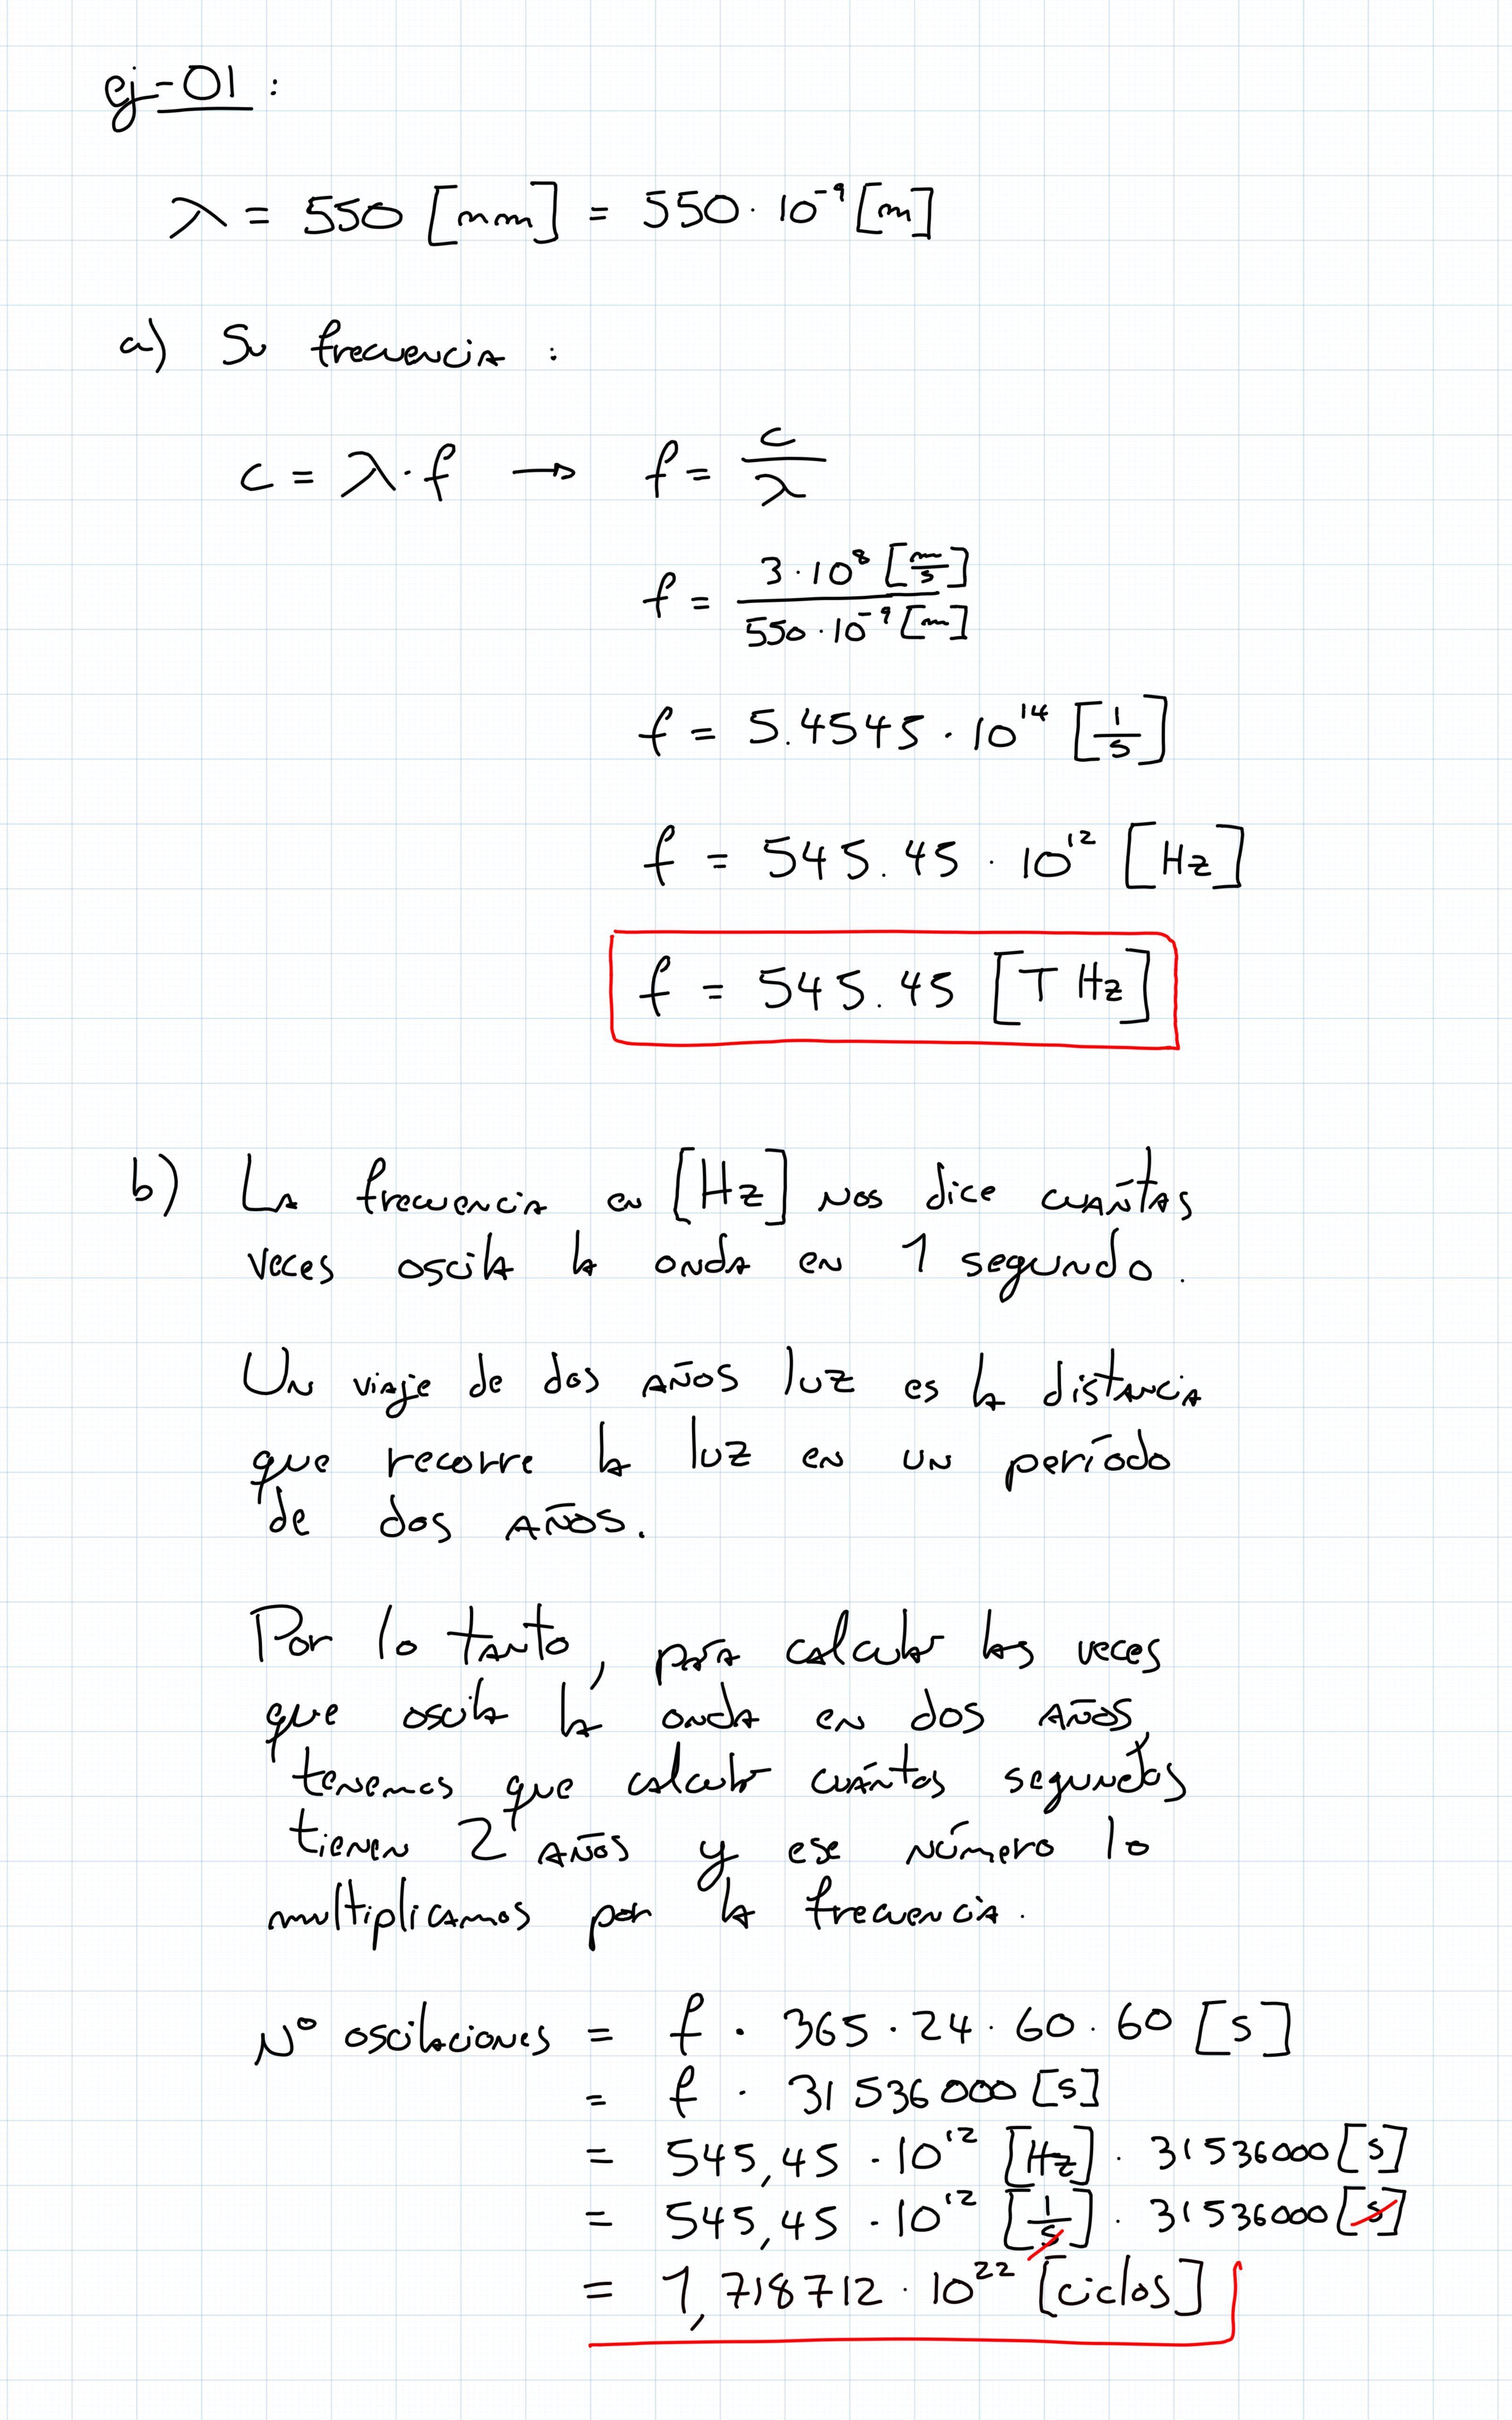 ej-01 :
λ = 550 [nm] = 550 · 10⁻⁹ [m]
a) Su frecuencia :
c = λ · f → f = c/λ
f = 3 · 10⁸ [m/s] / 550 · 10⁻⁹ [m]
f = 5.4545 · 10¹⁴ [1/s]
f = 545.45 · 10¹² [Hz]
f = 545.45 [T Hz]
b) La frecuencia en [Hz] nos dice cuántas
veces oscila la onda en 1 segundo.
Un viaje de dos años luz es la distancia
que recorre la luz en un período
de dos años.
Por lo tanto, para calcular las veces
que oscila la onda en dos años,
tenemos que calcular cuántos segundos
tienen 2 años y ese número lo
multiplicamos por la frecuencia.
Nº oscilaciones = f · 365 · 24 · 60 · 60 [s]
= f · 31 536 000 [s]
= 545,45 · 10¹² [Hz] · 31 536000 [s]
= 545,45 · 10¹² [1/s] · 31536000 [s]
= 1,718712 · 10²² [ciclos]